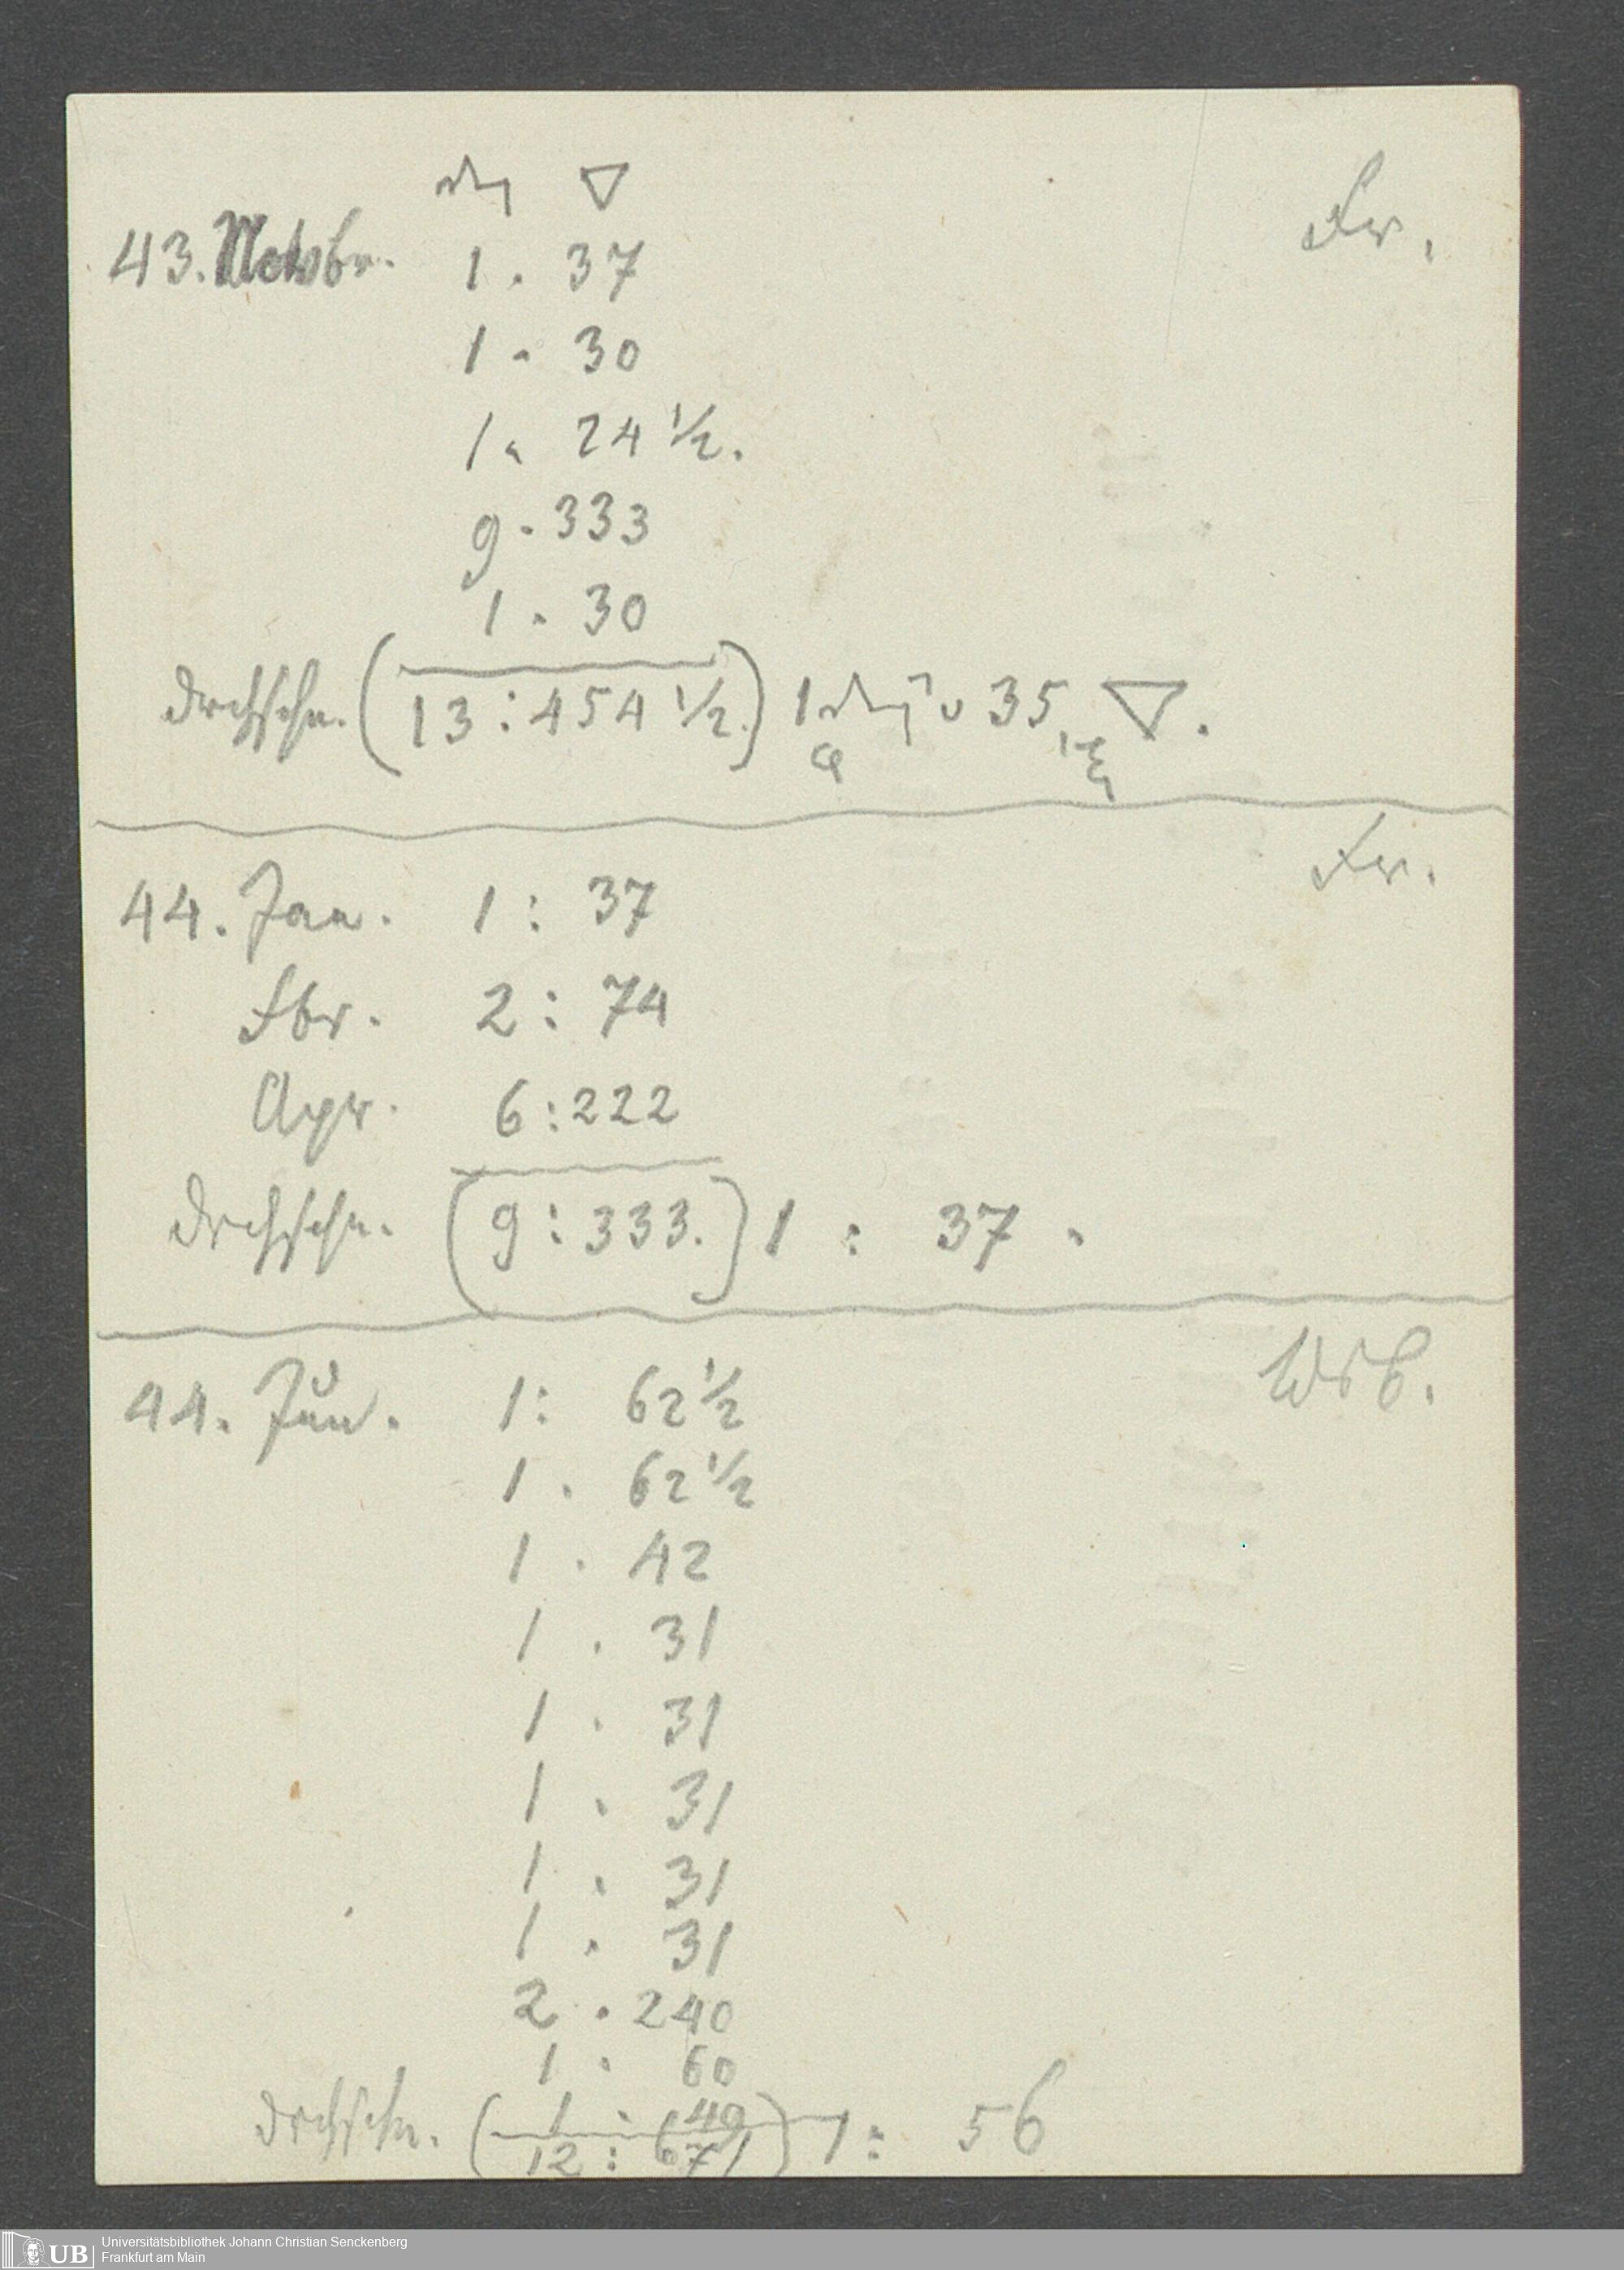 ▽
Fr.
43. Novbr. 1 . 37
1 . 30
1 . 24 ½.
9 . 333
1 . 30
drchschn. (13 : 454 ½.) 1 35, ▽.
Fr.
44. Jan. 1 : 37
Fbr. 2 : 74
Apr. 6 : 222
drchschn. (9 : 333.) 1 : 37 .
Wrb.
44. Jŭn. 1 : 62 ½
1 . 62 ½
1 . 42
1 . 31
1 . 31
1 . 31
1 . 31
1 . 31
2 . 240
1 . 60
1 . 49
drchschn. (12 : 671) 1 : 56
UB Universitätsbibliothek Johann Christian Senckenberg
Frankfurt am Main